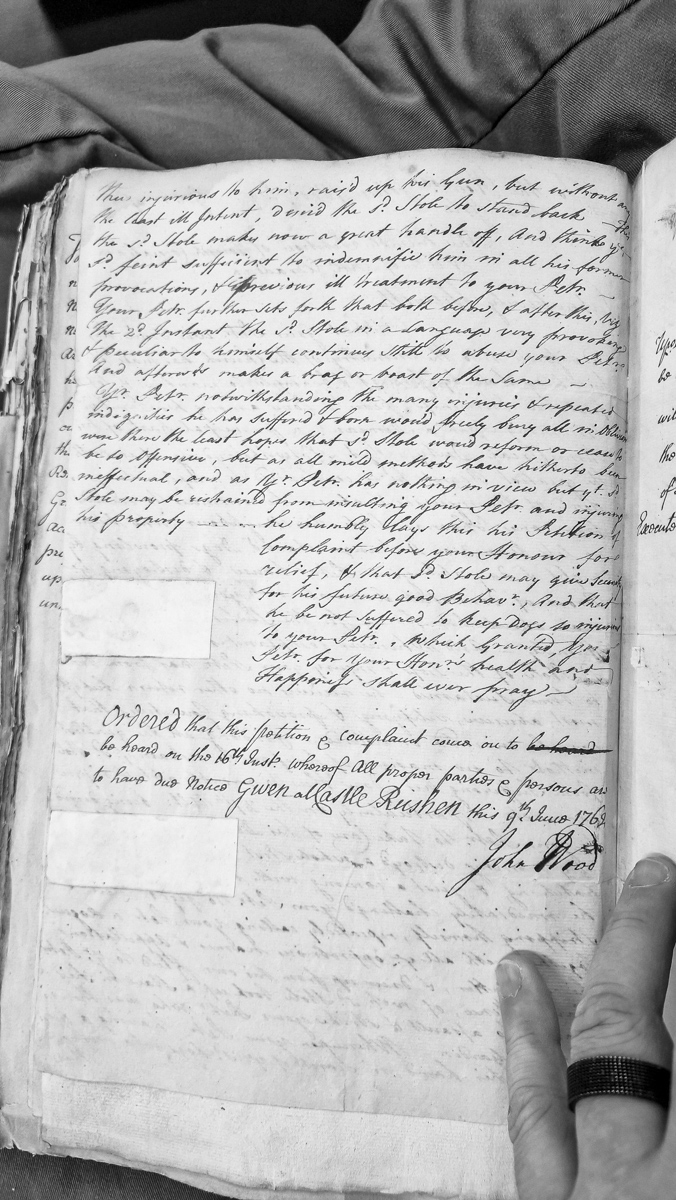 thus injurious to him, rais'd up his Gun, but without
the least ill Intent, desir'd the sd. Stole to stand back
the sd. Stole makes now a great handle off, And thinks yt.
sd. feint sufficient to indemnifie him in all his former
provocations, & previous ill treatment to your Petr.
Your Petr. further sets forth that both before, & after this, viz
The 2d. Instant the sd. Stole in a Language very provoking
& peculiar to himself continues still to abuse your Petr.
and afterwds makes a brag or boast of the same
Yr. Petr. notwithstanding the many injuries & repeated
indignities he has suffered & born would freely bury all in Oblivion
were there the least hopes that sd. Stole would reform or cease to
be so offensive, but as all mild methods have hitherto been
ineffectual, and as Yr. Petr. has nothing in view but yt. sd.
Stole may be restrained from insulting your Petr. and injuring
his property
he humbly lays this his Petition of
Complaint before your Honour for
relief, & that sd. Stole may give security
for his future good Behavr., And that
he be not suffered to keep Dogs so injurious
to your Petr. Which Granted Yor
Petr. for your Honrs health and
Happiness shall ever pray
Ordered that this petition & complaint come on to be heard
be heard on the 16th Inst. whereof All proper parties & persons are
to have due Notice Given at Castle Rushen this 9th June 1762
John Wood
Upon
be
wil
the
of
Executo